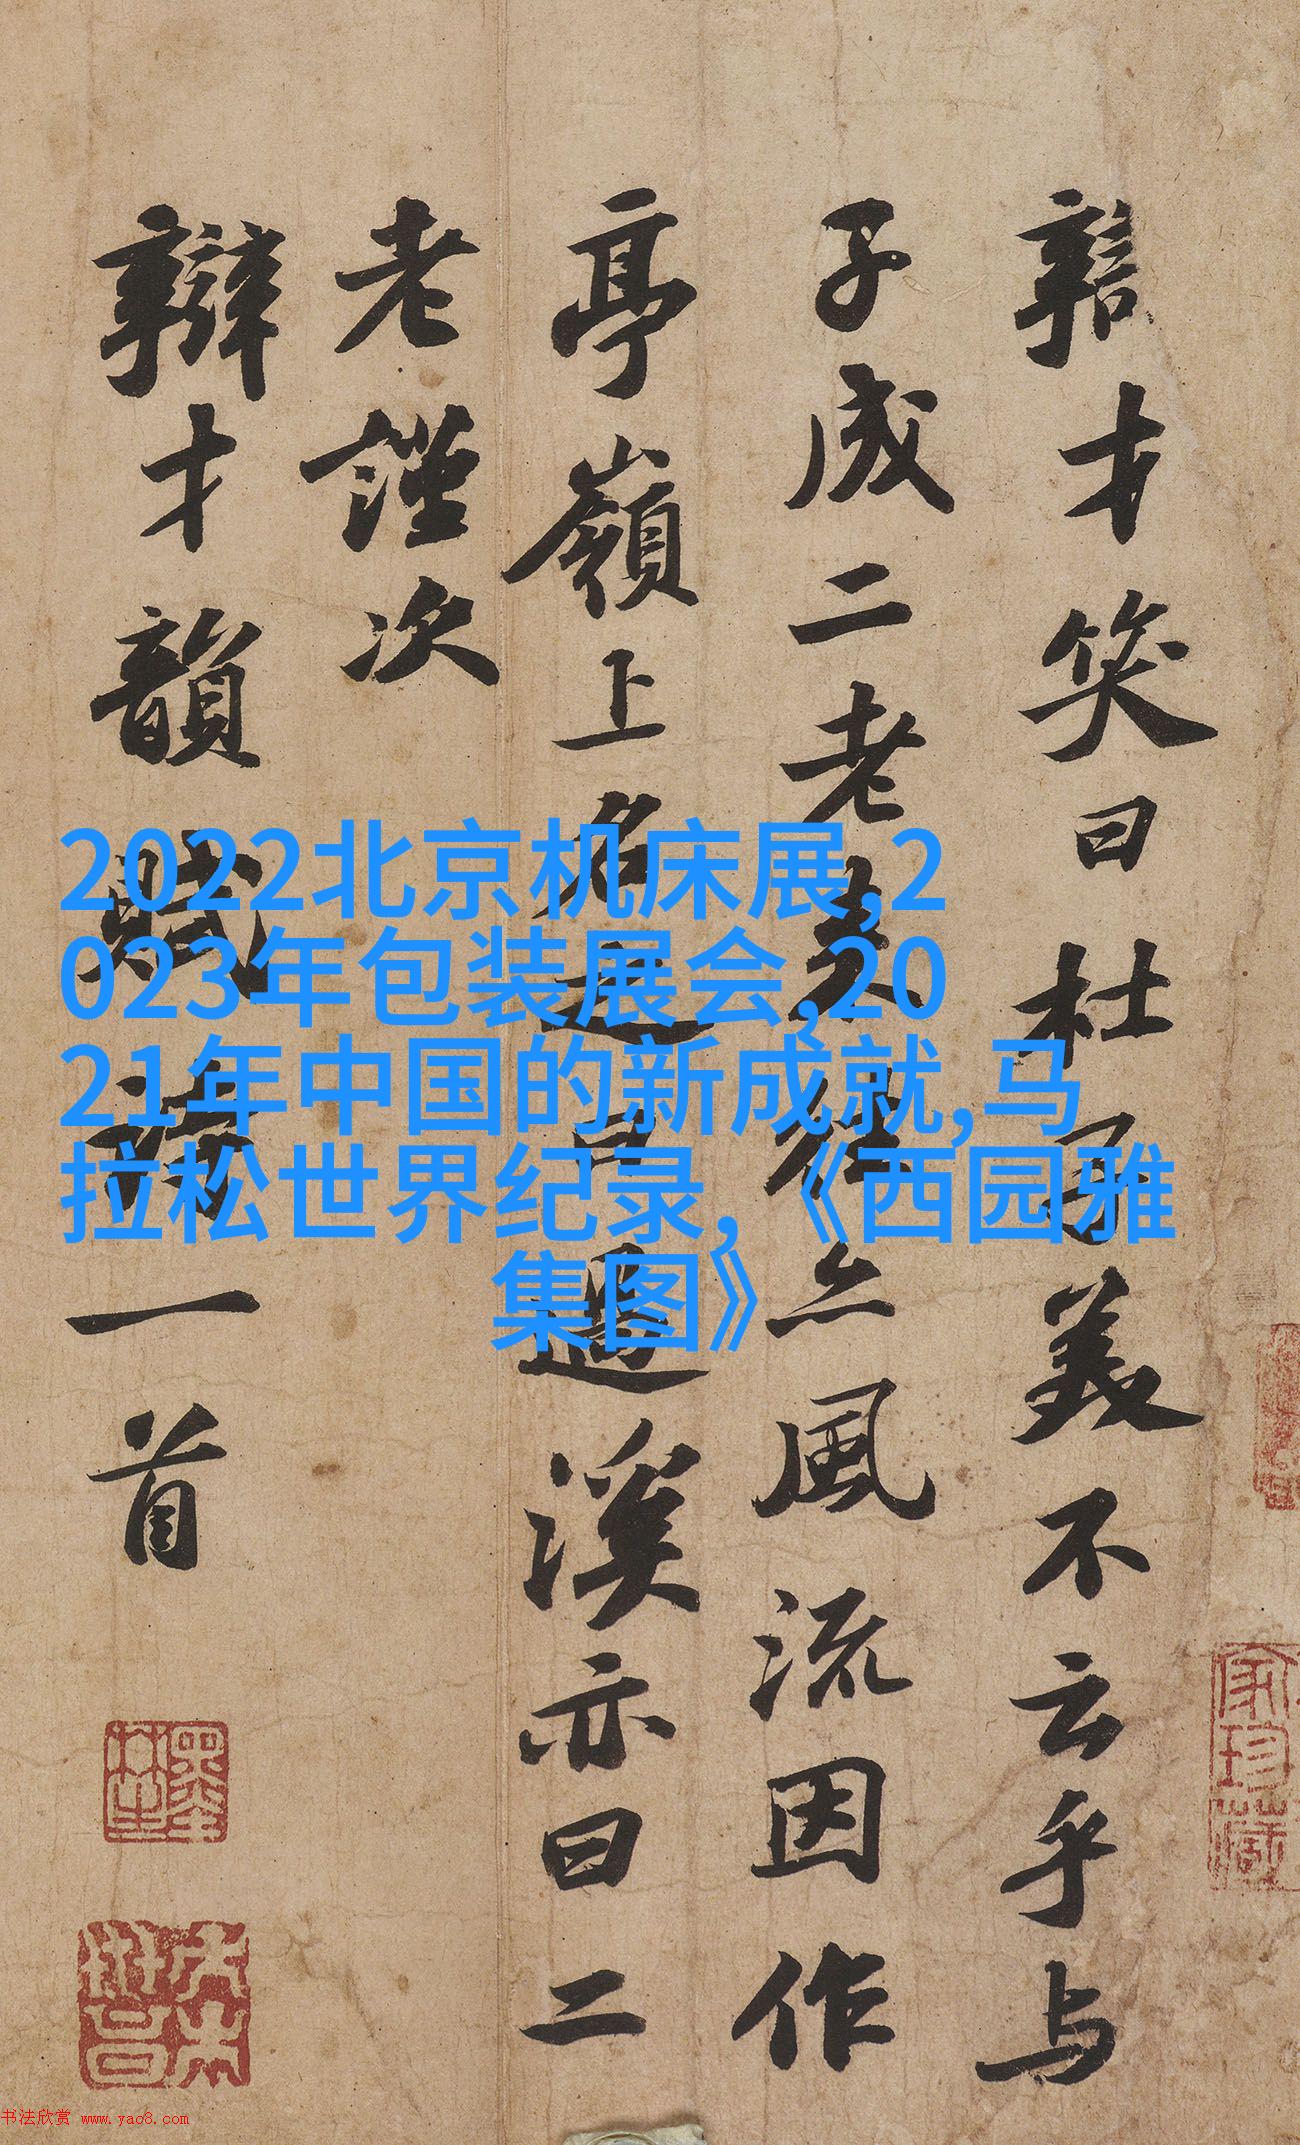 辯才笑曰杜子美不云乎与
子成二老来往亦風流因作
亭嶺上名之曰過溪亦曰二
老謹次
辯才韻賦詩一首
2022北京机床展,2
023年包装展会,20
21年中国的新成就,马
拉松世界纪录,《西园雅
集图》
家珍藏
书法欣赏 www.yac8.com